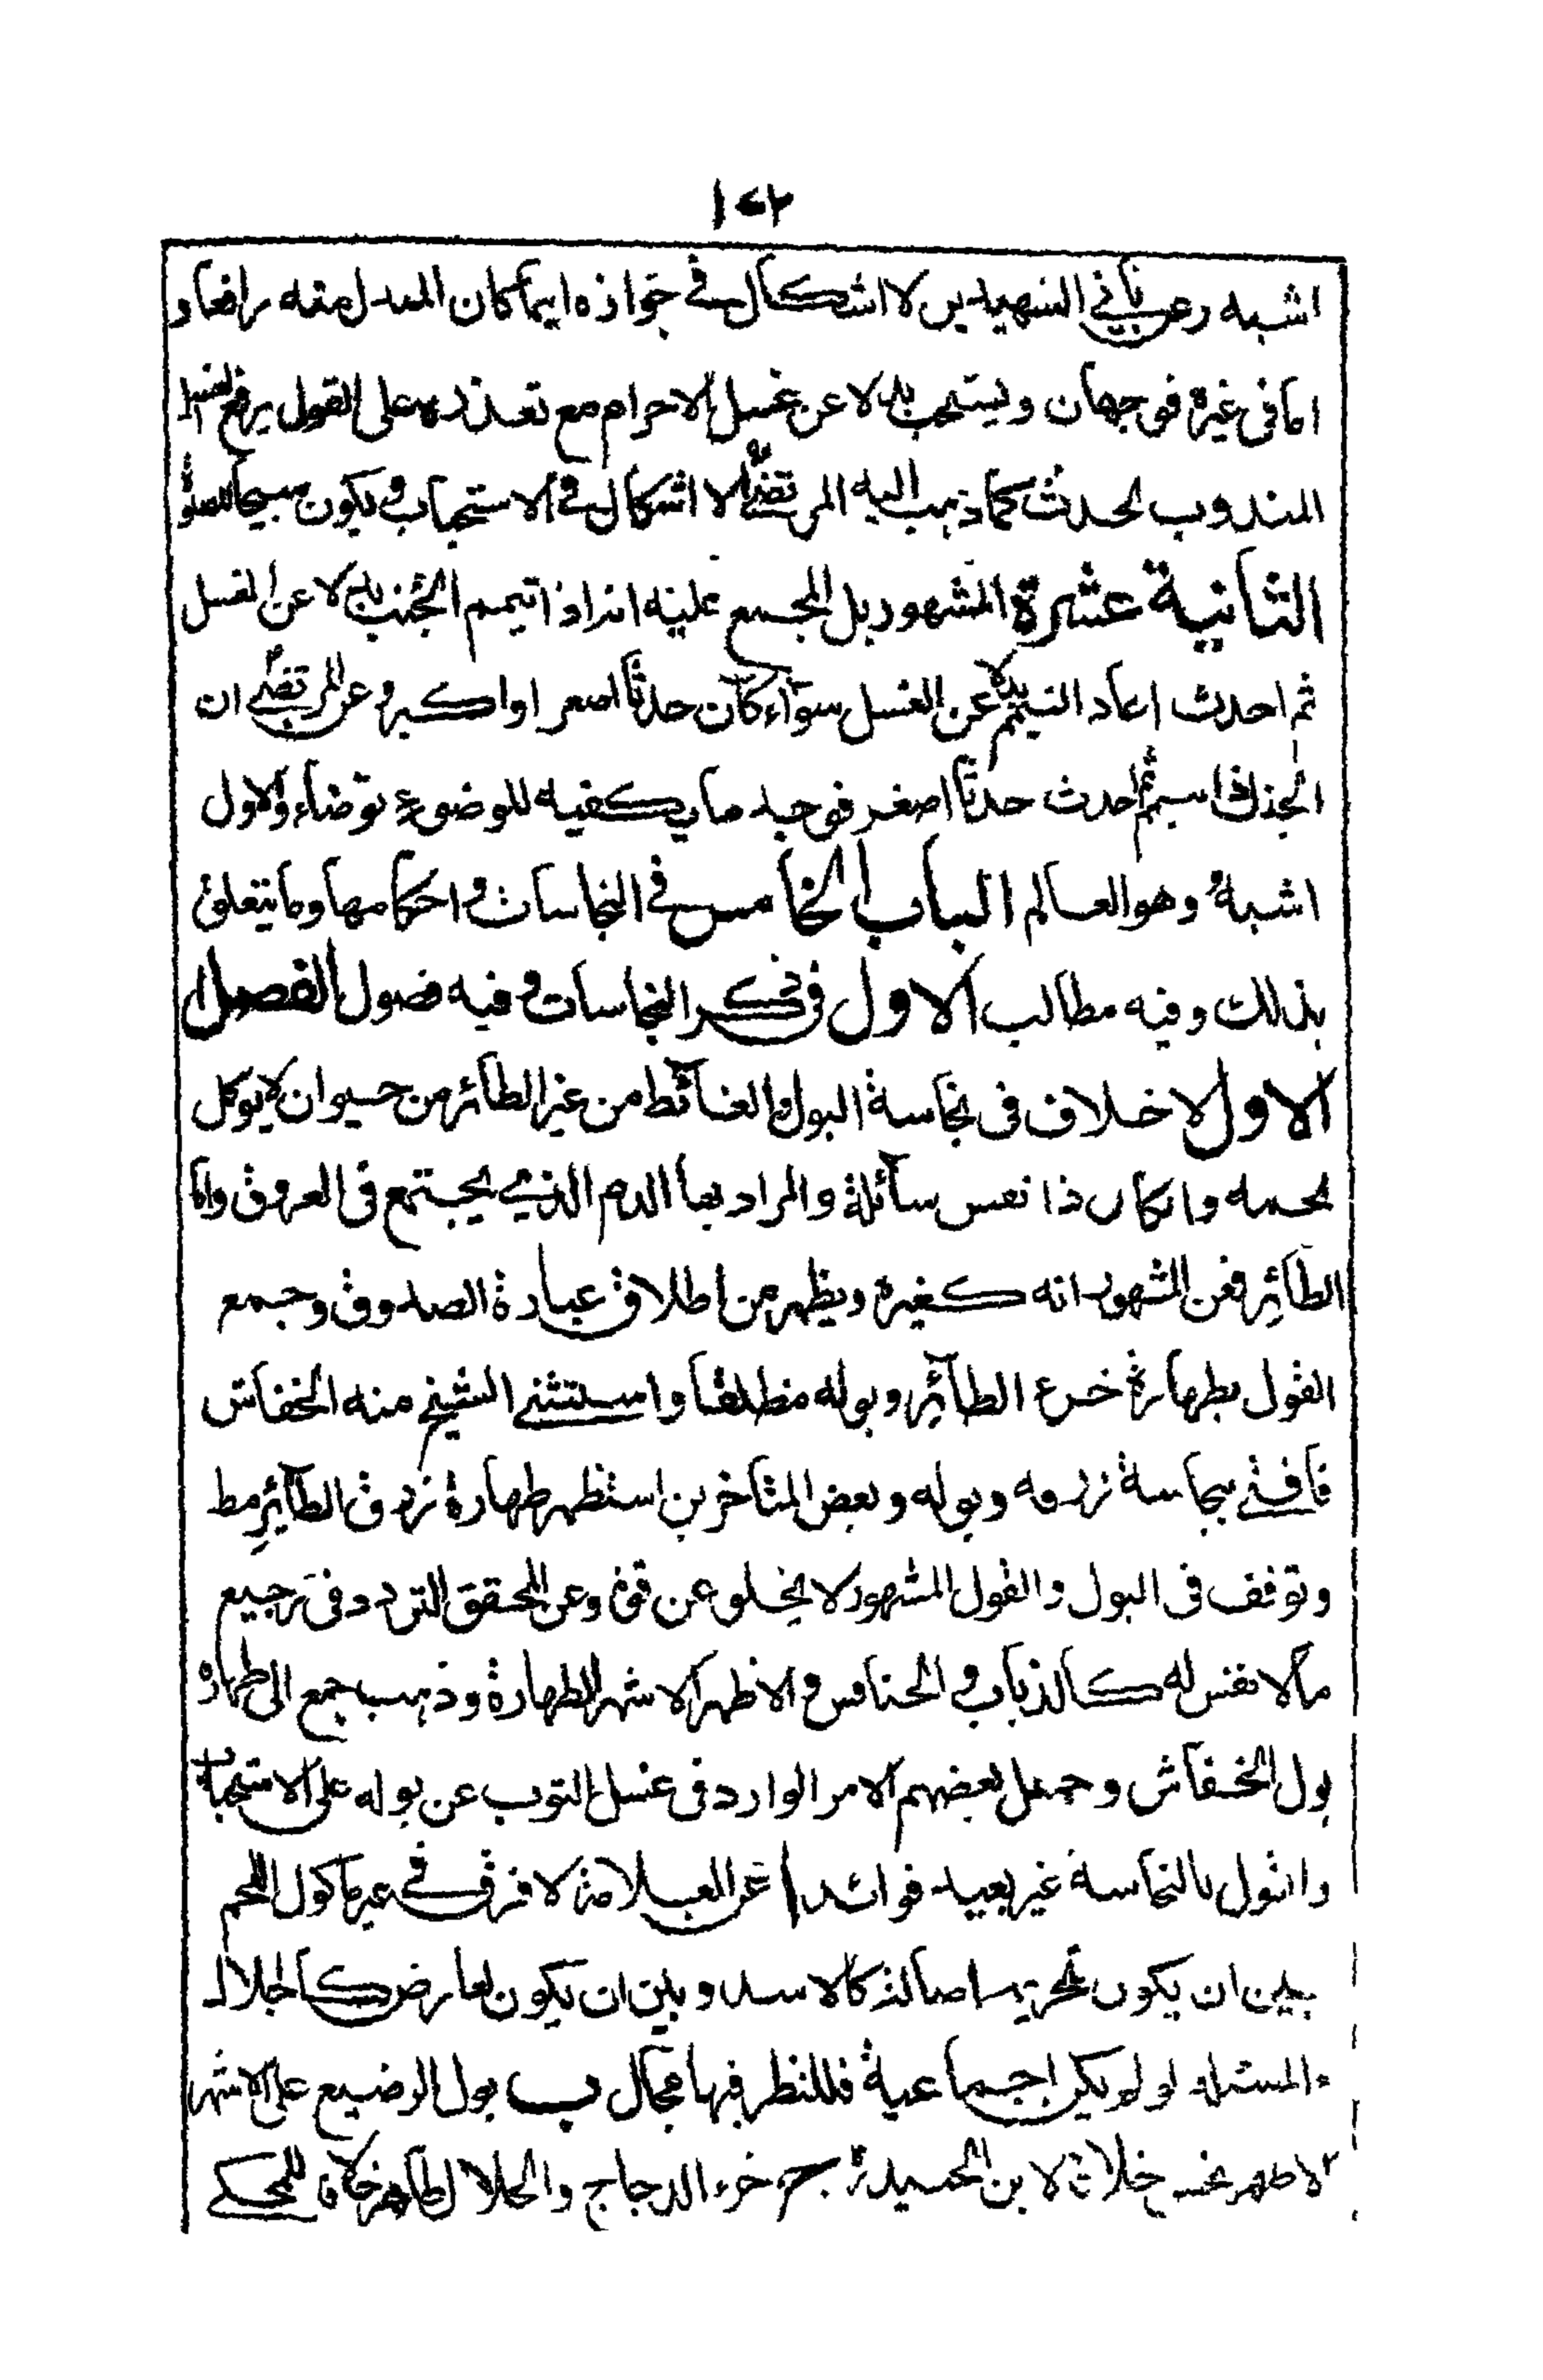 ١٤٢
اشبه وعن ثاني الشهيدين لا اشكال في جوازه ايما كان المبدل منه رافعا و
اما في غيره فوجهان ويستحب بدلا عن غسل الاحرام مع تعذره على القول برفع الغسل
المندوب لحدث كما ذهب اليه المرتضى لا اشكال في الاستحباب ويكون مبيحا للصلوة
الثانية عشرة المشهور بل المجمع عليه انه اذا تيمم الجنب بدلا عن الغسل
ثم احدث اعاد التيمم بدلا عن الغسل سوآء كان حدثا اصغر او اكبر وعن المرتضى ان
الجنب اذا تيمم ثم احدث حدثا اصغر فوجد ما يكفيه للوضوء توضاء والاول
اشبه وهو العالم الباب الخامس في النجاسات و احكامها وما يتعلق
بذلك وفيه مطالب الاول في ذكر النجاسات و فيه فصول الفصل
الاول لا خلاف في نجاسة البول والغائط من غير الطائر من حيوان لا يوكل
لحمه وان كان ذا نفس سآئلة والمراد بها الدم الذي يجتمع في العروق واما
الطآئر فعن المشهور انه كغيره ويظهر من اطلاق عبارة الصدوق وجمع
القول بطهارة خرء الطآئر وبوله مطلقا واستثنى الشيخ منه الخفاش
فافتى بنجاسة زرقه وبوله وبعض المتاخرين استظهر طهارة زرق الطآئر مط
وتوقف في البول والقول المشهور لا يخلو عن قوة وعن المحقق التردد في رجيع
ما لا نفس له كالذباب و الخنافس و الاظهر الاشهر الطهارة وذهب جمع الى طهارة
بول الخفاش وحمل بعضهم الامر الوارد في غسل الثوب عن بوله على الاستحباب
والقول بالنجاسة غير بعيد فوائد ا عن العلامة لا فرق في غير ماكول اللحم
بين ان يكون تحريمه اصالة كالاسد وبين ان يكون لعارض كالجلال
والمسئلة لو لم يكن اجماعية فللنظر فيها مجال ب بول الرضيع على الاشهر
الاظهر نجس خلافا لابن الجنيد ج خرء الدجاج والجلال طاهر خلافا للمحكي